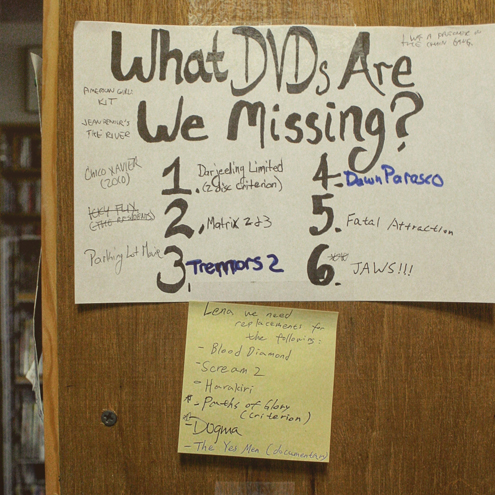 What DVDs Are
We Missing?
I WAS A PRISONER OF
THE CHAIN GANG
AMERICAN GIRL:
KIT
JEAN RENOIR'S
THE RIVER
CHICO XAVIER
(2010)
ICKY FLIX
(THE RESIDENTS)
Parking Lot Movie
1. Darjeeling Limited
(2 disc criterion)
2. Matrix 2&3
3. Tremors 2
4. Dawn Parasco
5. Fatal Attraction
6. JAWS!!!
Lena we need
replacements for
the following:
- Blood Diamond
- Scream 2
- Harakiri
- Paths of Glory
(Criterion)
- Dogma
- The Yes Men (documentary)